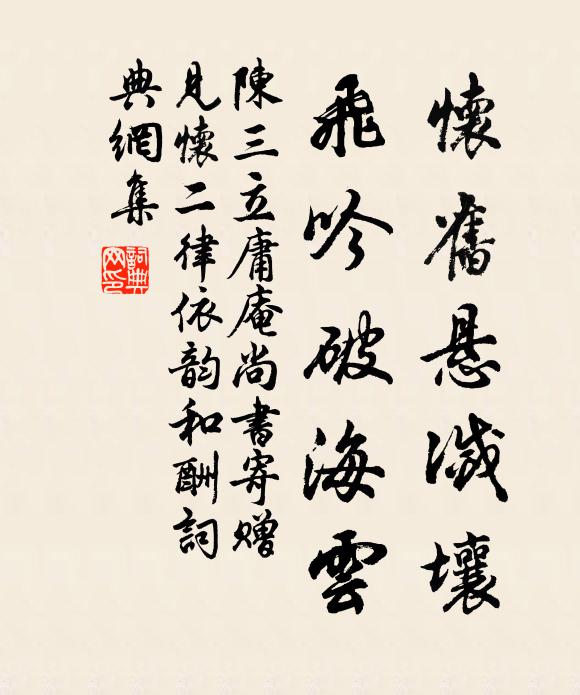 懷舊悬滅壤
飛吟破海雲
陳三立庸庵尚書寄贈
見懷二律依韵和酬詞
典網集
詞典網印